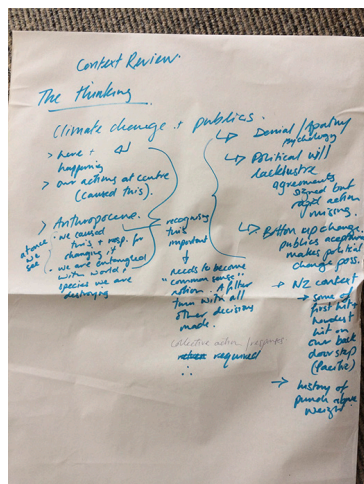 Context Review.
The thinking
Climate change + publics.
> here +
happening
> our actions at centre
(caused this).
> Anthropocene.
• we caused
this + resp. for
changing it
• we are entangled
with world +
species we are
destroying
atone
we
see
recognising
this
important
↓
needs to become
"common sense"
notion. A filter
turn with all
other decisions
made.
collective action/response
required
∴
↳ Denial/Apathy
psychology
↳ Political will
lacklustre
agreements
signed but
rapid action
missing.
↳ Bottom up change.
publics
makes political
change poss.
→ NZ context
→ some of
first hits
hardest
hit on
our back
door step
(Pacific)
→ history of
punch above
weight.